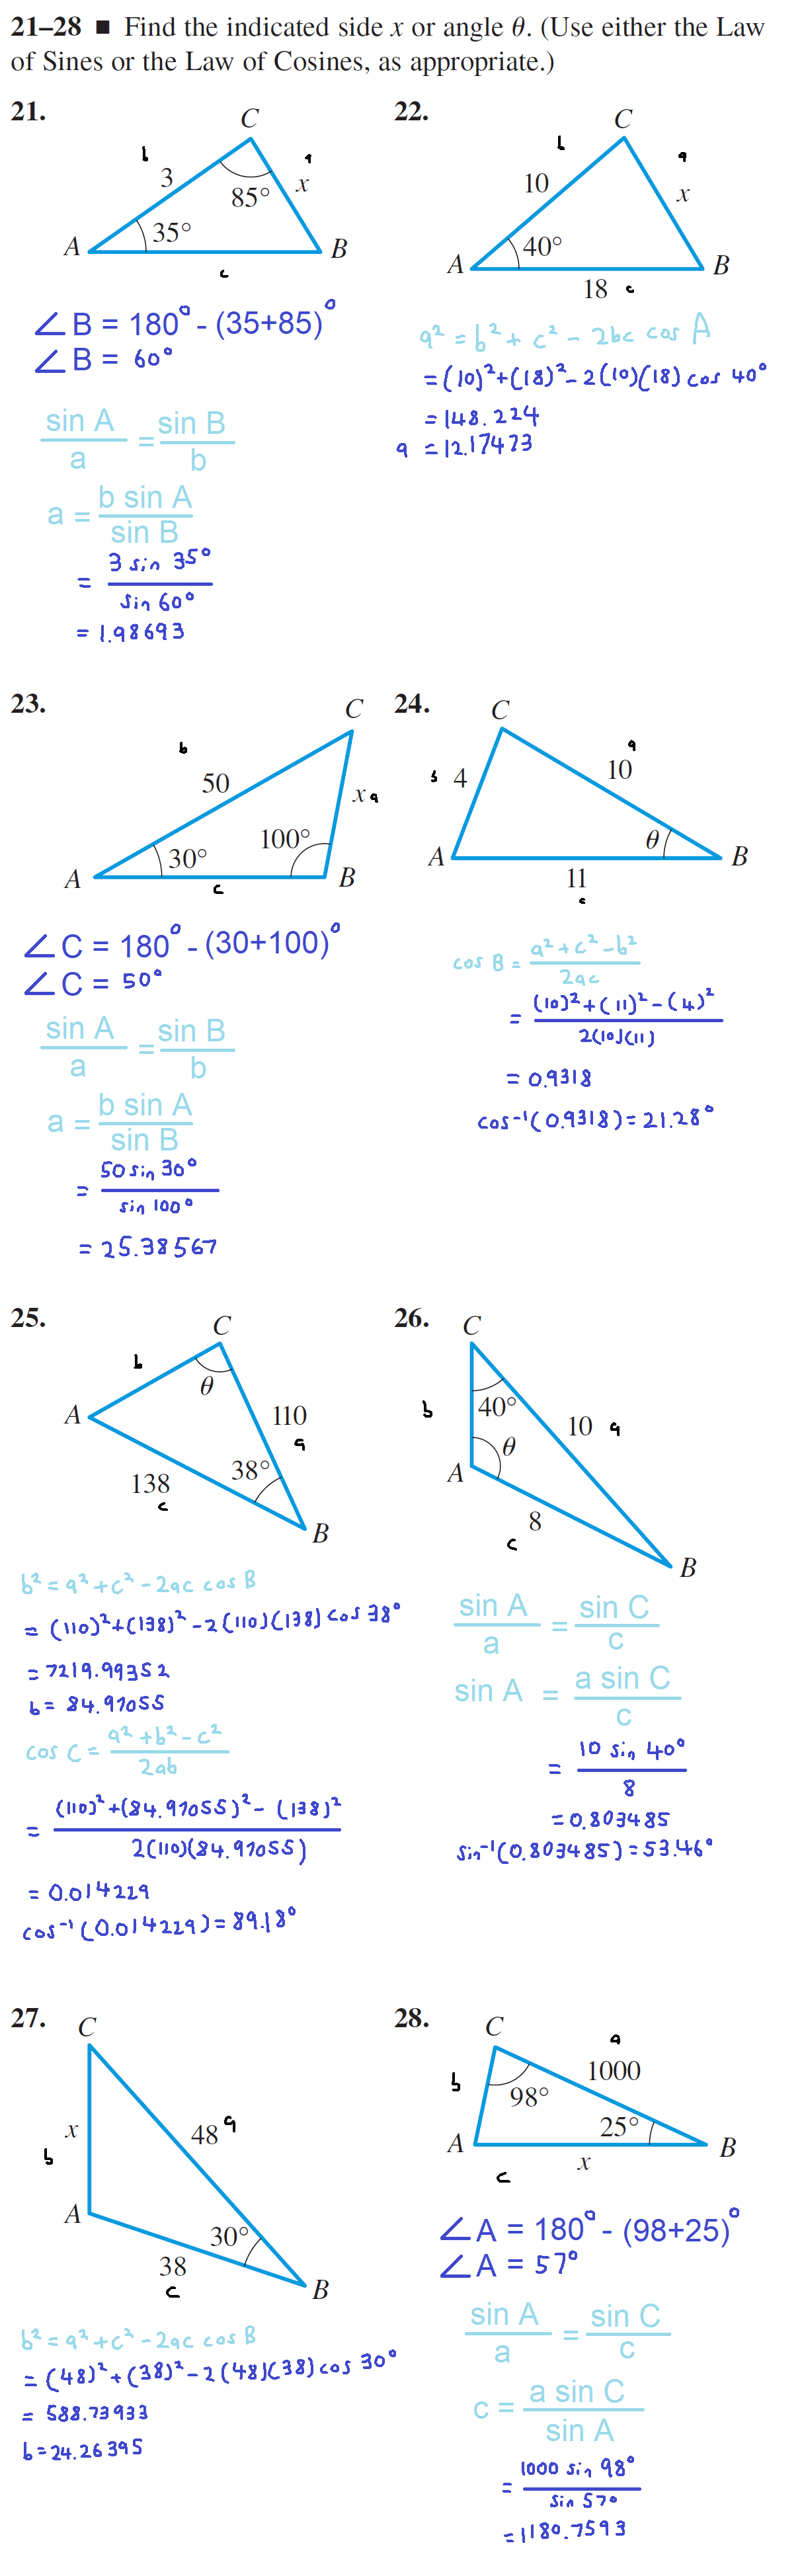 21–28 ■ Find the indicated side x or angle θ. (Use either the Law
of Sines or the Law of Cosines, as appropriate.)
21.
C
b
a
3
x
85°
35°
A
B
c
∠B = 180° - (35+85)°
∠B = 60°
sin A / a = sin B / b
a = b sin A / sin B
= 3 sin 35° / sin 60°
= 1.98693
22.
C
b
a
10
x
40°
A
B
18 c
a² = b² + c² - 2bc cos A
= (10)² + (18)² - 2(10)(18) cos 40°
= 148.224
a = 12.17473
23.
C
b
50
x a
100°
30°
A
B
c
∠C = 180° - (30+100)°
∠C = 50°
sin A / a = sin B / b
a = b sin A / sin B
= 50 sin 30° / sin 100°
= 25.38567
24.
C
a
10
b 4
θ
A
B
11
c
cos B = a² + c² - b² / 2ac
= (10)² + (11)² - (4)² / 2(10)(11)
= 0.9318
cos⁻¹(0.9318) = 21.28°
25.
C
b
θ
A
110
a
38°
138
c
B
b² = a² + c² - 2ac cos B
= (110)² + (138)² - 2(110)(138) cos 38°
= 7219.99352
b = 84.97055
cos C = a² + b² - c² / 2ab
= (110)² + (84.97055)² - (138)² / 2(110)(84.97055)
= 0.014229
cos⁻¹(0.014229) = 89.18°
26.
C
b
40°
10 a
θ
A
8
c
B
sin A / a = sin C / c
sin A = a sin C / c
= 10 sin 40° / 8
= 0.803485
sin⁻¹(0.803485) = 53.46°
27.
C
x
48 a
b
A
30°
38
c
B
b² = a² + c² - 2ac cos B
= (48)² + (38)² - 2(48)(38) cos 30°
= 588.73933
b = 24.26395
28.
C
a
1000
b
98°
25°
A
B
x
c
∠A = 180° - (98+25)°
∠A = 57°
sin A / a = sin C / c
c = a sin C / sin A
= 1000 sin 98° / sin 57°
= 1180.7593